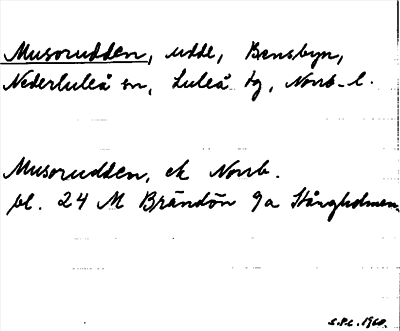 Musorudden, udde, Bensbyn,
Nederluleå sn, Luleå tg, Norrb. l.
Musorudden, ek Norrb.
bl. 24 M Brändön 9a Stångholmen.
1960.